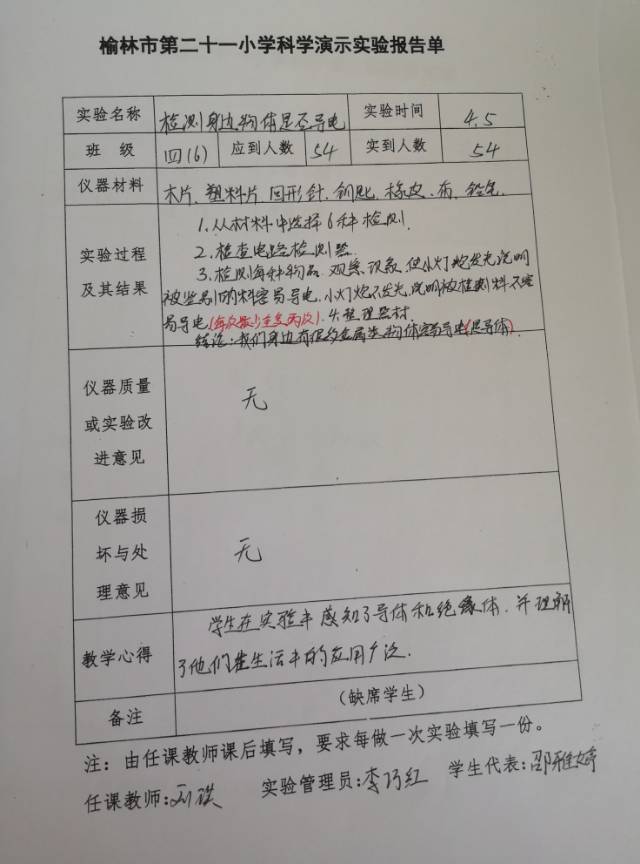 榆林市第二十一小学科学演示实验报告单
实验名称 检测身边物体是否导电 实验时间 4.5
班 级 四(6) 应到人数 54 实到人数 54
仪器材料 木片、塑料片、回形针、钥匙、橡皮、布、铅笔
实验过程及其结果
1.从材料中选择6种检测.
2.检查电路检测器.
3.检测每种物品,观察现象,使小灯炮发光说明
被鉴别的料容易导电,小灯炮不发光,说明被检测料不容
易导电(每次最少重复两次).4.整理器材.
结论:我们身边有很多金属类物体容易导电(是导体).
仪器质量
或实验改
进意见
无
仪器损
坏与处
理意见
无
教学心得
学生在实验中感知了导体和绝缘体,并理解
了他们在生活中的应用广泛.
备注 (缺席学生)
注:由任课教师课后填写,要求每做一次实验填写一份。
任课教师: 实验管理员:李巧红 学生代表:邵雅婷